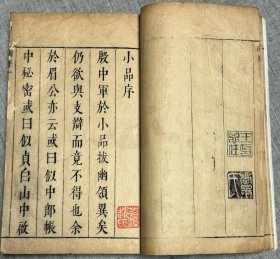 小品序
殷中軍於小品拔幽領異矣
仍欲與支辯而竟不得也余
於眉公亦云或曰似中郎帳
中秘密或曰似貞白山中啟